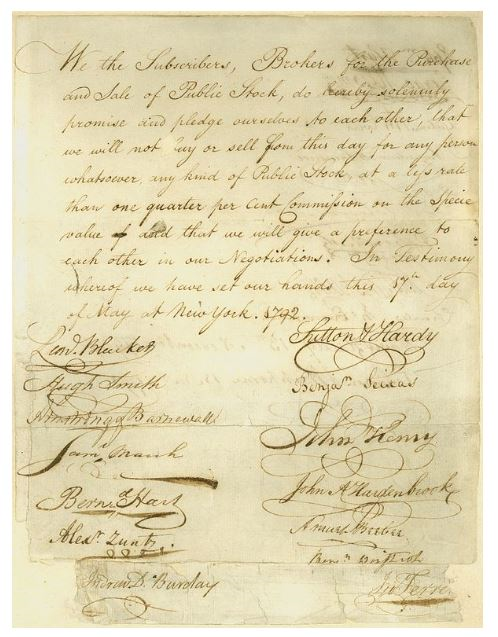 We the Subscribers, Brokers for the Purchase
and Sale of Public Stock, do hereby solemnly
promise and pledge ourselves to each other, that
we will not buy or sell from this day for any person
whatsoever, any kind of Public Stock, at a less rate
than one quarter per Cent Commission on the Specie
value & and that we will give a preference to
each other in our Negotiations. In Testimony
whereof we have set our hands this 17th day
of May at New York. 1792.
Leod. Bleecker
Hugh Smith
Armstrong & Barnewall
Saml. Marsh
Bernd. Hart
Alexr. Zuntz.
Andrew D. Barclay
Sutton & Hardy
Benjan. Seixas
John Henry
John A Hardenbrook
Amurt Beebee